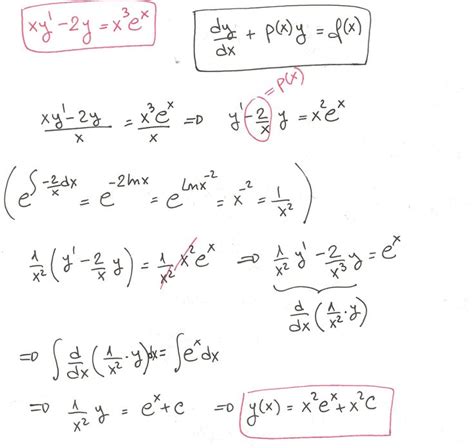 xy' - 2y = x³eˣ
dy/dx + p(x)y = f(x)
(xy' - 2y)/x = x³eˣ/x ⇒ y' - 2/x y = x²eˣ
= p(x)
(e^∫-2/x dx = e^-2lnx = e^lnx⁻² = x⁻² = 1/x²)
1/x² (y' - 2/x y) = 1/x² x²eˣ ⇒ 1/x² y' - 2/x³ y = eˣ
d/dx (1/x² · y)
⇒ ∫ d/dx (1/x² · y) dx = ∫ eˣ dx
⇒ 1/x² y = eˣ + c ⇒ y(x) = x²eˣ + x²C